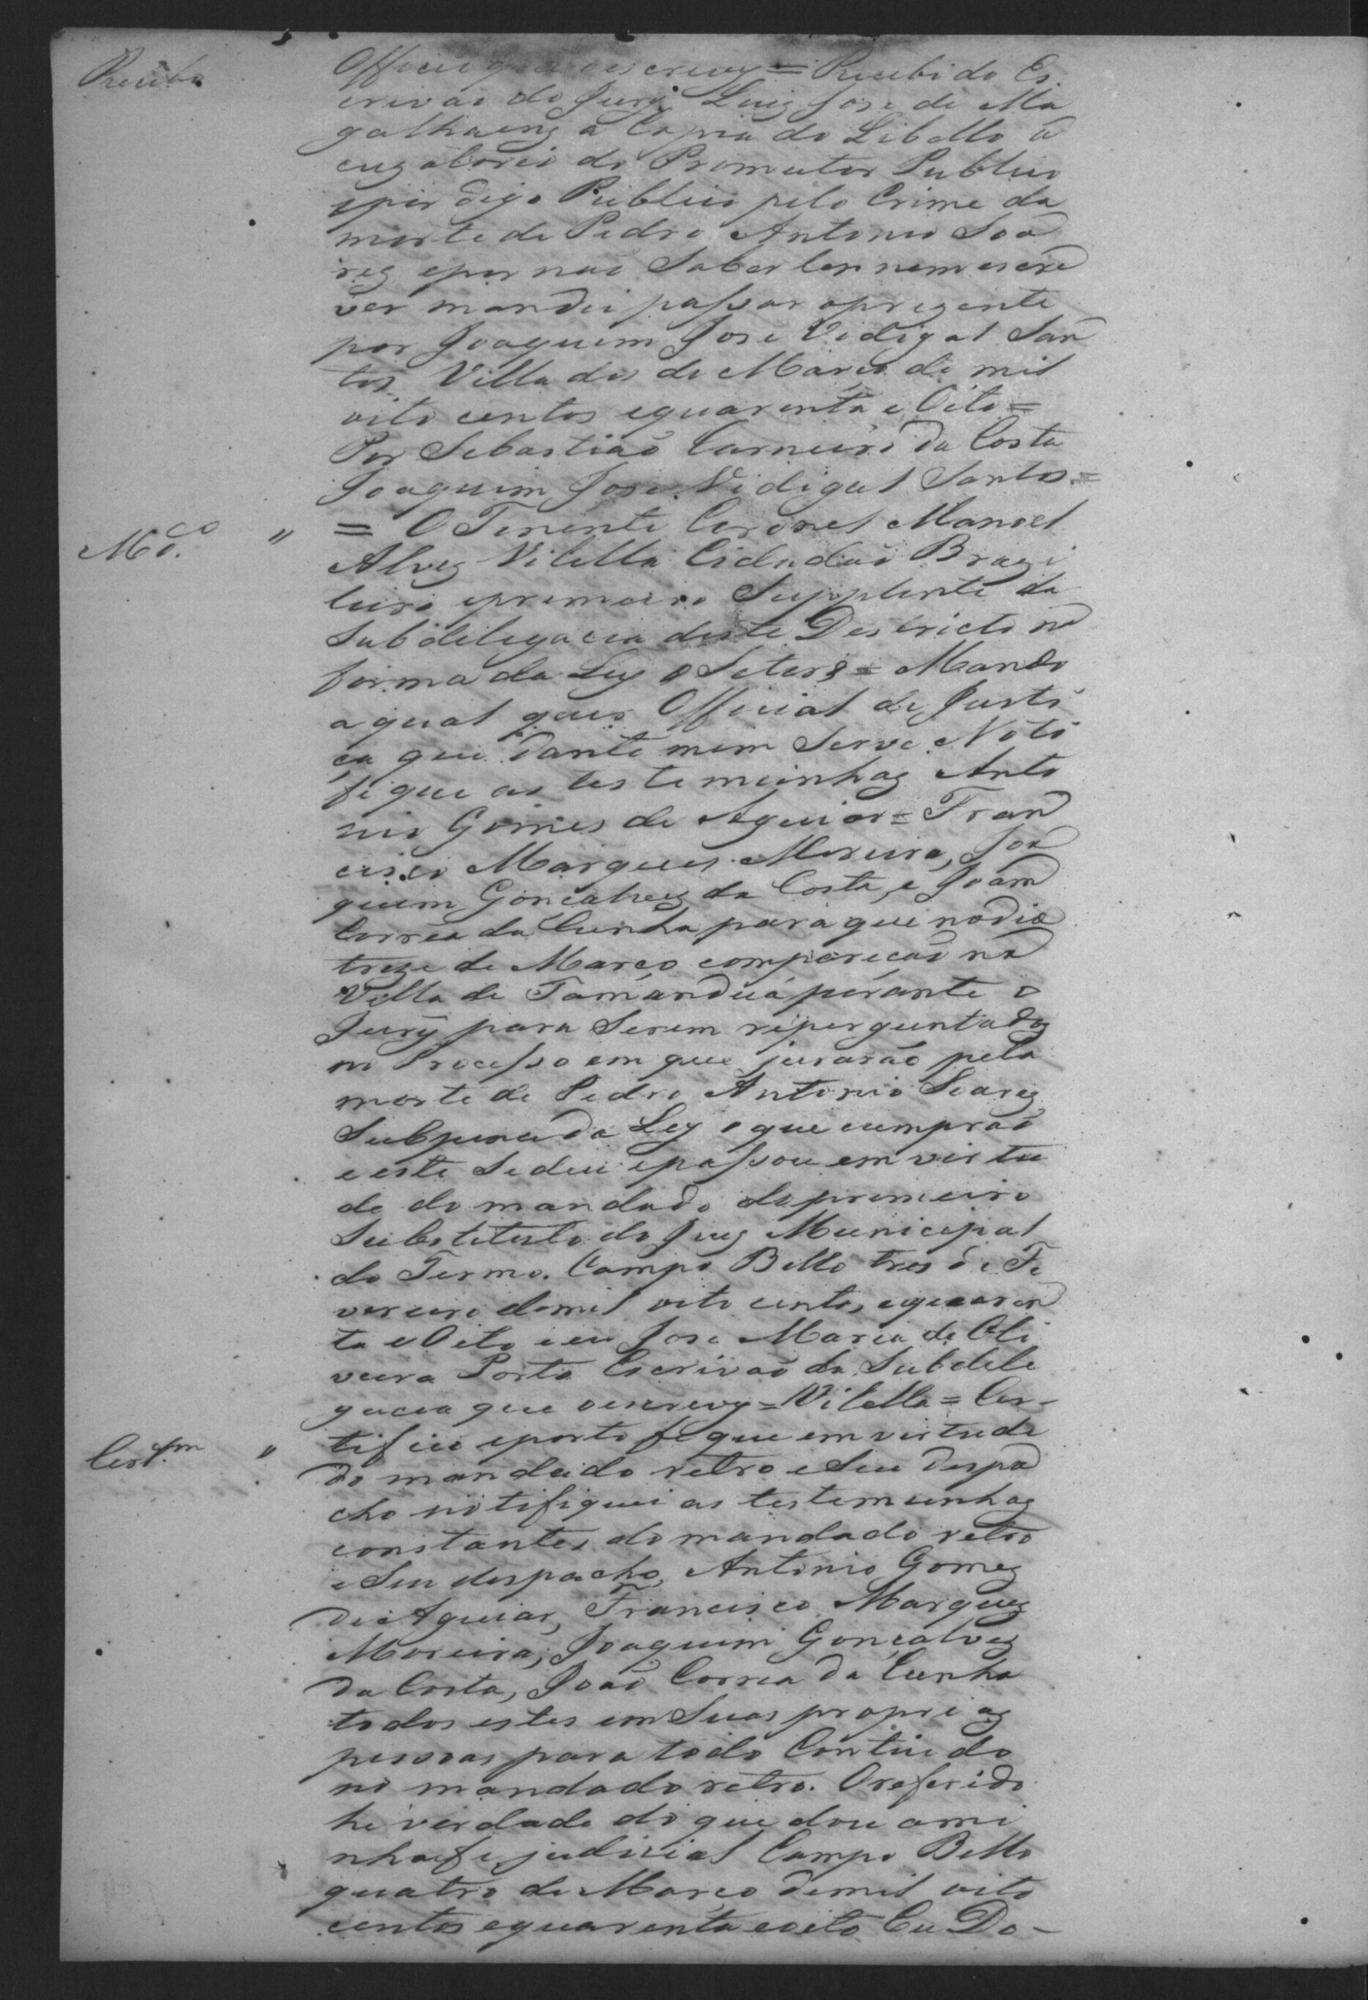 Recibo
Officio que o escrevy = Recebi do Es
crivão do Jury Luiz Jose de Ma
galhaens a Copia do Libello a
cuzatorio do Promutor Publico
e por digo Publico pelo Crime da
morte de Pedro Antonio Soa
rez e por nao Saber ler nem escre
ver mandei passar a prezente
por Joaquim Jose Vidigal San
tos Villa dois de Março de mil
oito centos e quarenta e Oito =
Por Sebastião Carneiro da Costa
Joaquim Jose Vidigal Santos =
Mdo. " = O Tenente Coronel Manoel
Alvez Vilella Cidadão Brazi
leiro e primeiro Supplente da
Subdelegacia deste Destricto na
forma da Ley etcetera = Mando
a qual quer Official de Justi
ça que dante mim Serve Noti
fique as testemunhaz Anto
nio Gomes de Aguiar = Fran
cisco Marques Moreira, Joa
quim Gonçalvez da Costa, e Joam
Correa da Cunha para que no dia
treze de Março compareção na
Villa de Tamanduá perante o
Jury para Serem reperguntadoz
no Processo em que jurarão pela
morte de Pedro Antonio Soarez
Sub pena da Ley o que cumprão
e este Se deu e passou em virtu
de do mandado do primeiro
Substituto do Juiz Municipal
do Termo. Campo Bello tres de Fe
vereiro de mil oito centos e quaren
ta e Oito e eu Jose Maria de Oli
veira Porto Escrivão da Subdele
gacia que o escrevy = Vilella = Cer-
Certam " tifico e porto fe que em virtude
do mandado retro e Seu despa
cho notifiquei as testemunhaz
constantes do mandado retro
e Seu despacho, Antonio Gomez
de Aguiar, Francisco Marquez
Moreira, Joaquim Gonçalvez
da Costa, João Correa da Cunha
todos estes em Suas propriaz
pessoas para todo Contiudo
no mandado retro. O referido
he verdade do que dou a mi
nha fe judicial Campo Bello
quatro de Março de mil oito
centos e quarenta e oito Eu Do-